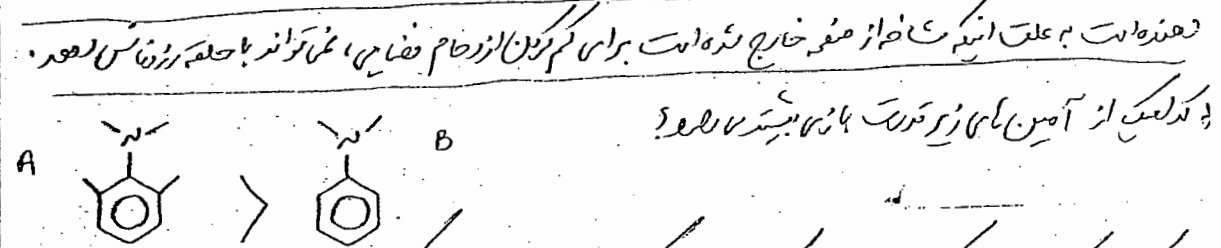 دهنده است به علت اینکه شاخه از صفحه خارج شده است برای کم کردن ازدحام فضایی، نمی‌تواند با حلقه رزونانس دهد.
کدامیک از آمین های زیر قدرت بازی بیشتری دارد؟
A N > N B